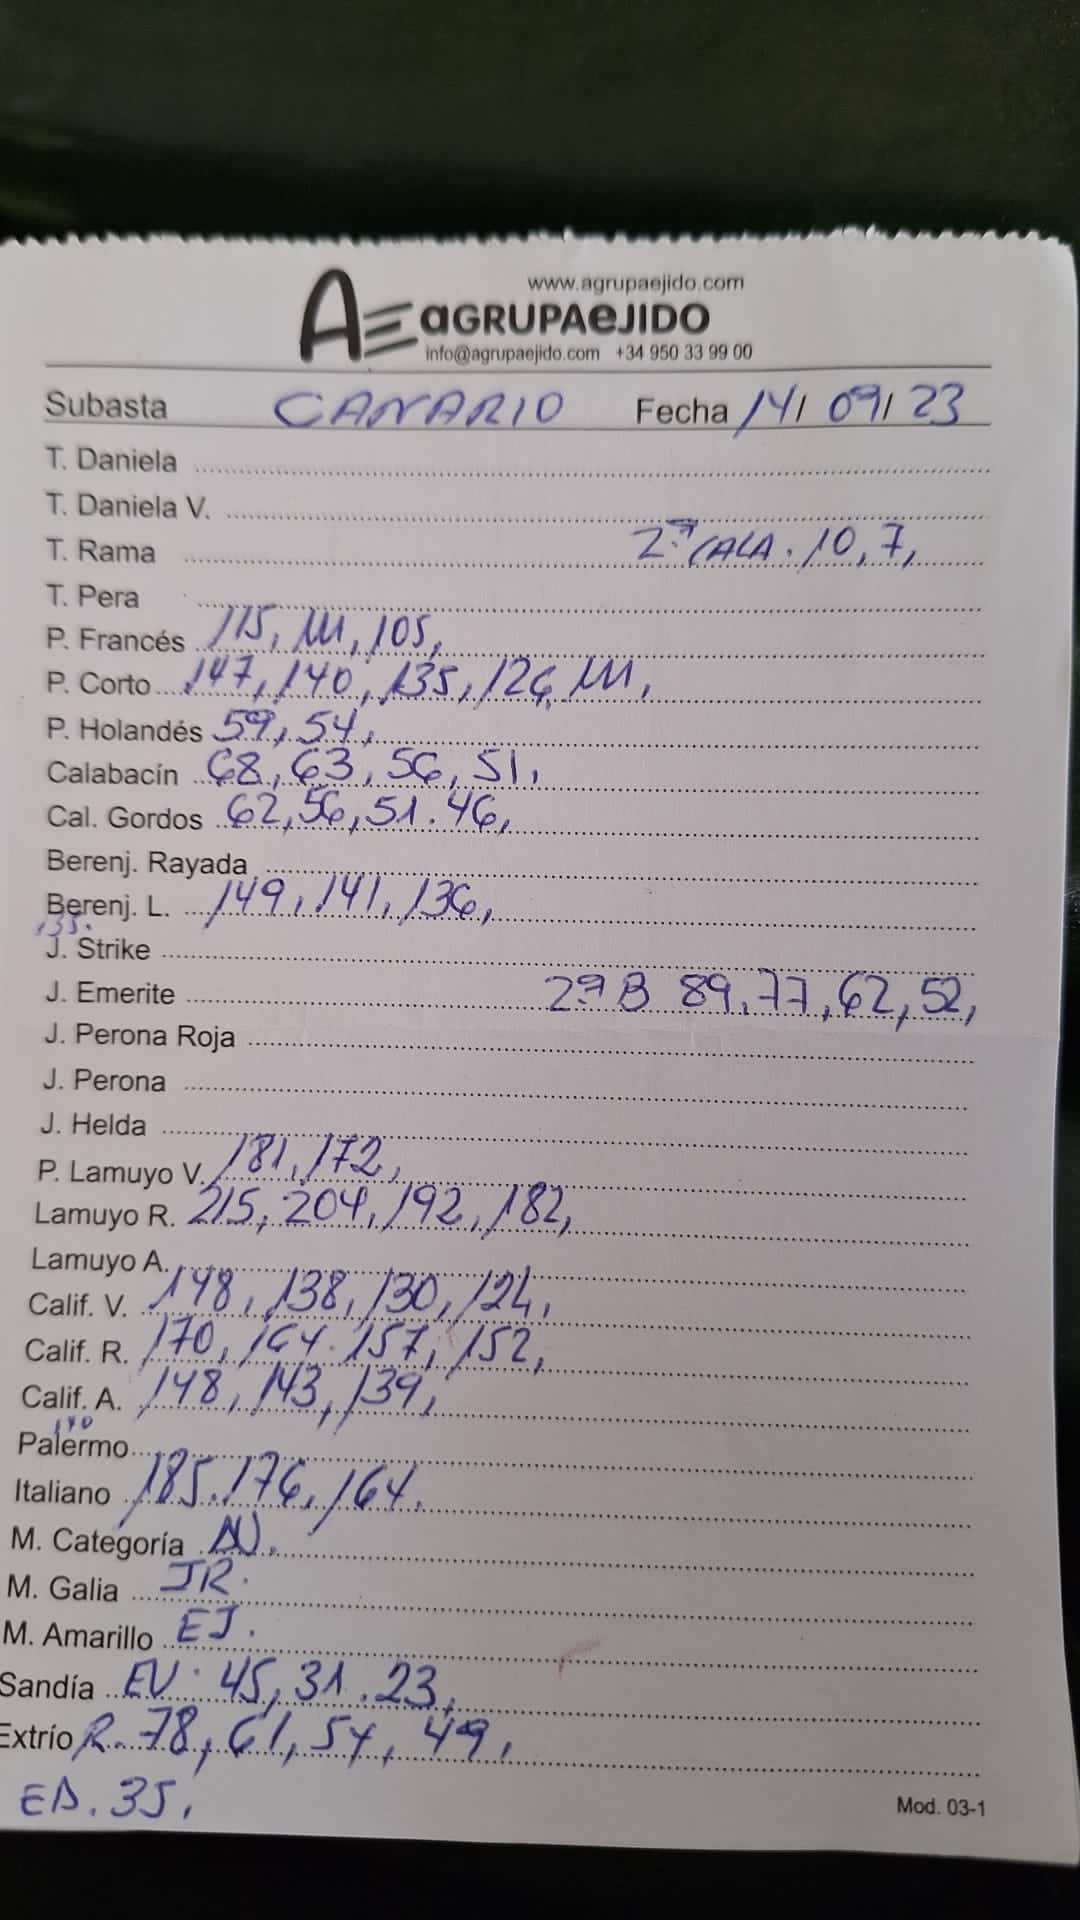 www.agrupaejido.com
AE aGRUPAeJIDO
info@agrupaejido.com +34 950 33 99 00
Subasta CANARIO Fecha 14/ 09/ 23
T. Daniela
T. Daniela V.
T. Rama 2ª CALA. 10, 7,
T. Pera
P. Francés 115, 111, 105,
P. Corto 147, 140, 135, 126, 111,
P. Holandés 59, 54,
Calabacín 68, 63, 56, 51,
Cal. Gordos 62, 56, 51. 46,
Berenj. Rayada
Berenj. L. 149, 141, 136,
135.
J. Strike
J. Emerite 2ª B 89, 77, 62, 52,
J. Perona Roja
J. Perona
J. Helda
P. Lamuyo V. 181, 172,
Lamuyo R. 215, 204, 192, 182,
Lamuyo A.
Calif. V. 148, 138, 130, 124,
Calif. R. 170, 164. 157, 152,
Calif. A. 148, 143, 139,
140
Palermo
Italiano 185. 176, 164.
M. Categoría
M. Galia JR.
M. Amarillo EJ.
Sandía EV. 45, 31. 23,
Extrío R. 78, 61, 54, 49,
35,
Mod. 03-1